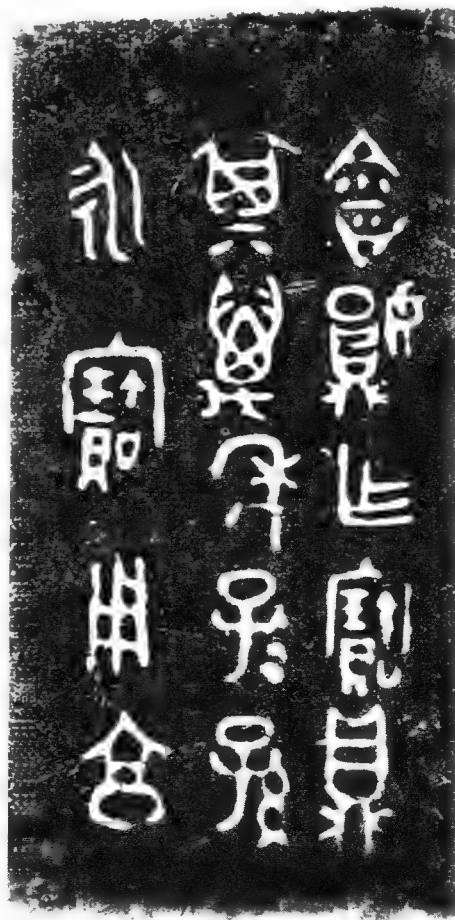 會妘乍寶鼎
其萬年子子孫
永寶用享